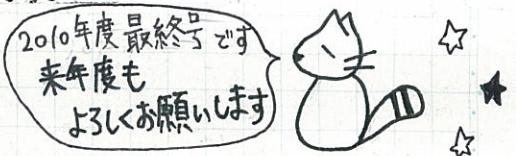 2010年度最終号です
来年度も
よろしくお願いします